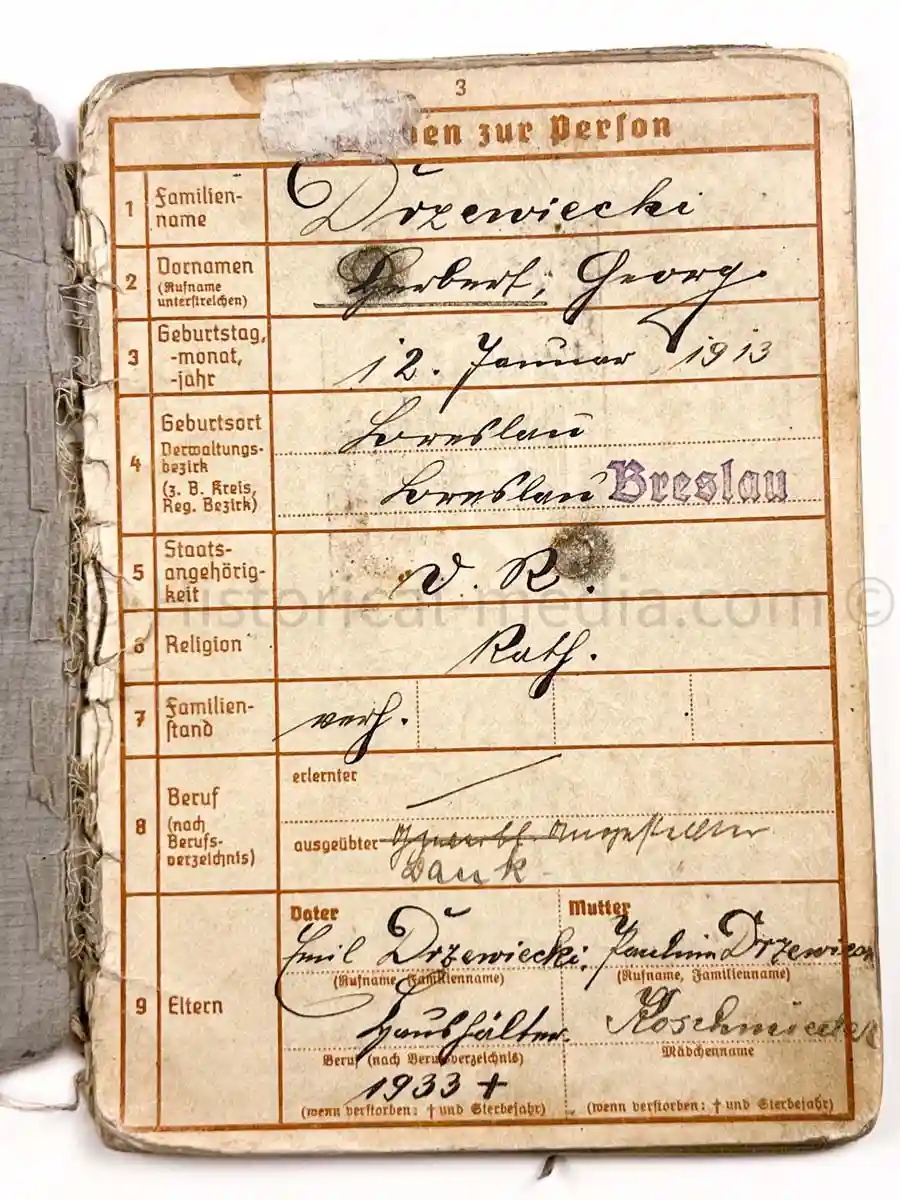 3
ben zur Person
1 Familien-
name
Drzewiecki
2 Vornamen
(Rufname
unterstreichen)
Herbert, Georg.
3 Geburtstag,
-monat,
-jahr
12. Januar 1913
4 Geburtsort
Verwaltungs-
bezirk
(z. B. Kreis,
Reg. Bezirk)
Breslau
Breslau Breslau
5 Staats-
angehörig-
keit
D. R.
6 Religion
Kath.
7 Familien-
stand
verh.
8 Beruf
(nach
Berufs-
verzeichnis)
erlernter
ausgeübter Angestellter
Bank
9 Eltern
Vater
Emil Drzewiecki,
(Rufname, Familienname)
Haushälter.
Beruf (nach Berufsverzeichnis)
1933 +
(wenn verstorben: † und Sterbejahr)
Mutter
Drzewiecki
(Rufname, Familienname)
Mädchenname
(wenn verstorben: † und Sterbejahr)
historical-media.com ©